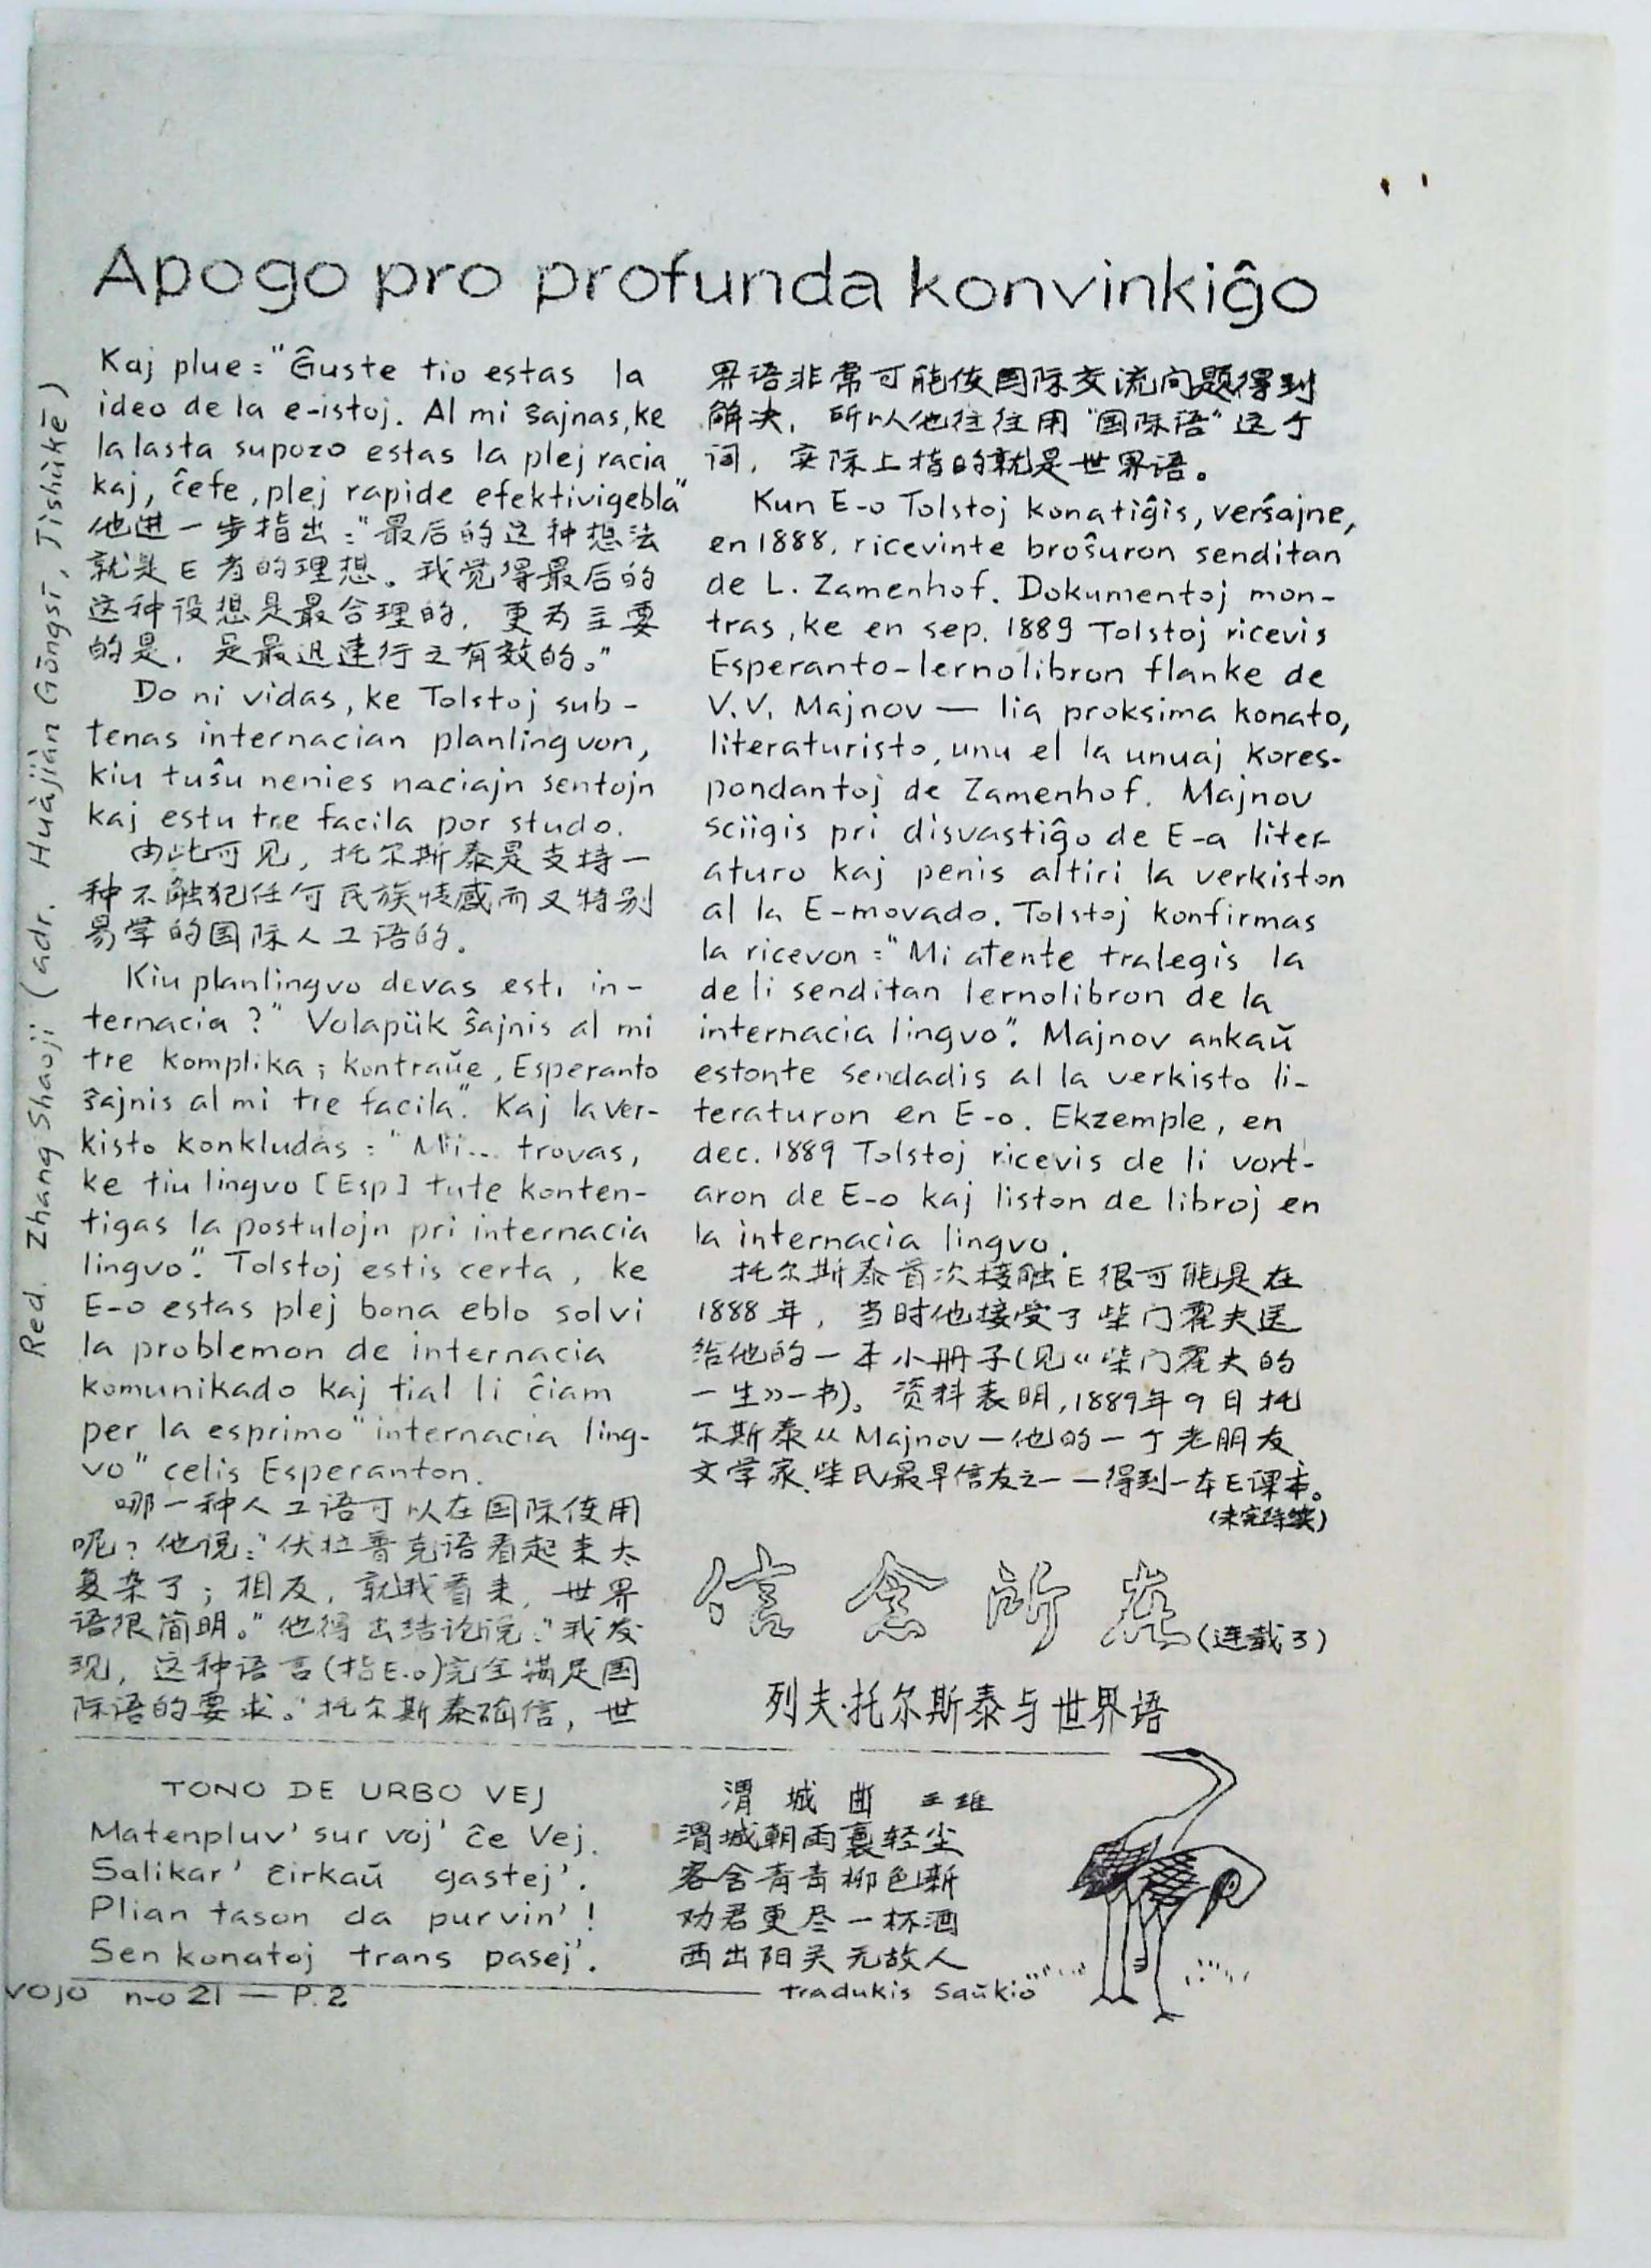 Apogo pro profunda konvinkiĝo
Kaj plue: "Ĝuste tio estas la
ideo de la e-istoj. Al mi ŝajnas, ke
la lasta supozo estas la plej racia
kaj, ĉefe, plej rapide efektivigebla"
他进一步指出："最后的这种想法
就是E者的理想。我觉得最后的
这种设想是最合理的，更为主要
的是，是最迅速行之有效的。"
Do ni vidas, ke Tolstoj sub-
tenas internacian planlingvon,
kiu tuŝu nenies naciajn sentojn
kaj estu tre facila por studo.
由此可见，托尔斯泰是支持一
种不触犯任何民族情感而又特别
易学的国际人工语的。
Kiu planlingvo devas esti in-
ternacia ?" Volapük ŝajnis al mi
tre komplika; kontraŭe, Esperanto
ŝajnis al mi tre facila". Kaj la ver-
kisto konkludas: "Mi... trovas,
ke tiu lingvo [Esp] tute konten-
tigas la postulojn pri internacia
lingvo". Tolstoj estis certa, ke
E-o estas plej bona eblo solvi
la problemon de internacia
komunikado kaj tial li ĉiam
per la esprimo "internacia ling-
vo" celis Esperanton.
哪一种人工语可以在国际使用
呢？他说："伏拉普克语看起来太
复杂了；相反，就我看来，世界
语很简明。"他得出结论说："我发
现，这种语言(指E-o)完全满足国
际语的要求。"托尔斯泰确信，世
界语非常可能使国际交流问题得到
解决，所以他往往用"国际语"这个
词，实际上指的就是世界语。
Kun E-o Tolstoj konatiĝis, verŝajne,
en 1888, ricevinte broŝuron senditan
de L. Zamenhof. Dokumentoj mon-
tras, ke en sep. 1889 Tolstoj ricevis
Esperanto-lernolibron flanke de
V.V. Majnov — lia proksima konato,
literaturisto, unu el la unuaj kores-
pondantoj de Zamenhof. Majnov
sciigis pri disvastiĝo de E-a liter-
aturo kaj penis altiri la verkiston
al la E-movado. Tolstoj konfirmas
la ricevon: "Mi atente tralegis la
de li senditan lernolibron de la
internacia lingvo". Majnov ankaŭ
estonte sendadis al la verkisto li-
teraturon en E-o. Ekzemple, en
dec. 1889 Tolstoj ricevis de li vort-
aron de E-o kaj liston de libroj en
la internacia lingvo.
托尔斯泰首次接触E很可能是在
1888年，当时他接受了柴门霍夫送
给他的一本小册子(见《柴门霍夫的
一生》一书)。资料表明，1889年9日托
尔斯泰从Majnov—他的一个老朋友
文学家、柴氏最早信友之一—得到一本E课本。
(未完待续)
信念所在(连载3)
列夫·托尔斯泰与世界语
Red. Zhang Shaoji (adr. Huàjiàn Gōngsī, Jìshùkē)
TONO DE URBO VEJ
Matenpluv' sur voj' ĉe Vej.
Salikar' ĉirkaŭ gastej'.
Plian tason da purvin'!
Sen konatoj trans pasej'.
渭城曲 王维
渭城朝雨裛轻尘
客舍青青柳色新
劝君更尽一杯酒
西出阳关无故人
tradukis Saŭkio
VOJO n-o 21 — P.2